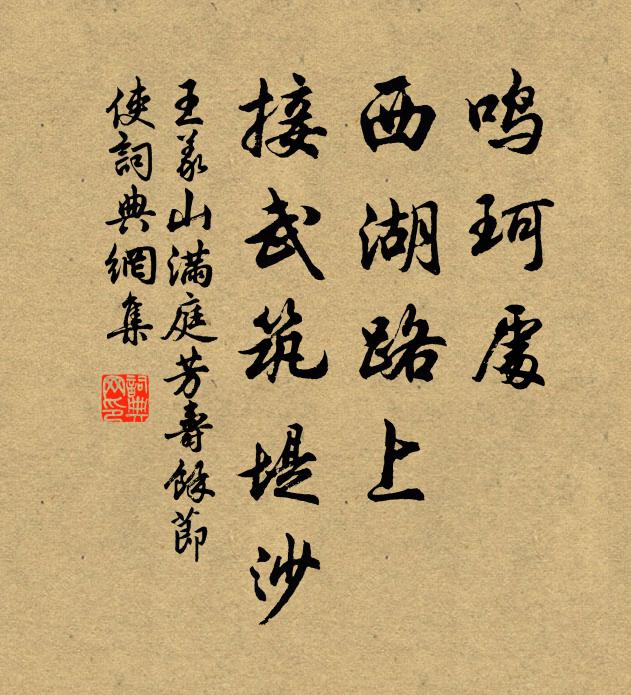 鸣珂處
西湖路上
接武筑堤沙
王義山满庭芳壽餘節
使詞典網集
詞典网印